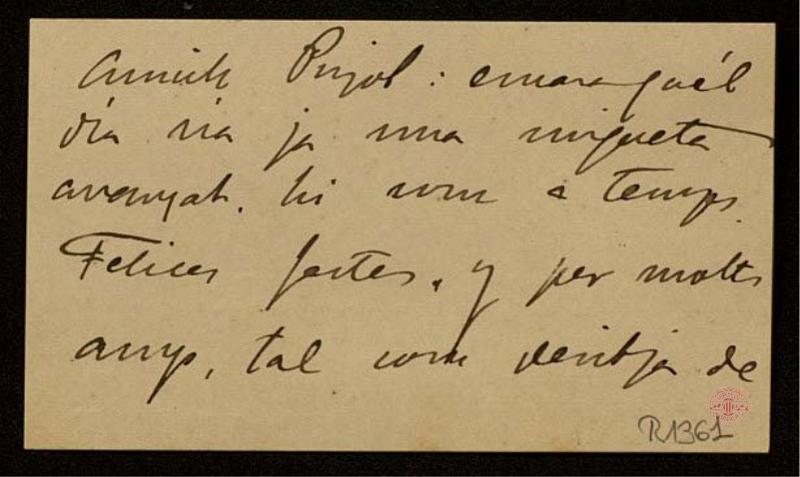 Amich Pujol: emara que'l
dia sia ja una miqueta
avançat, hi som a temps.
Felices festes, y per molts
anys, tal com desitja de
R1361